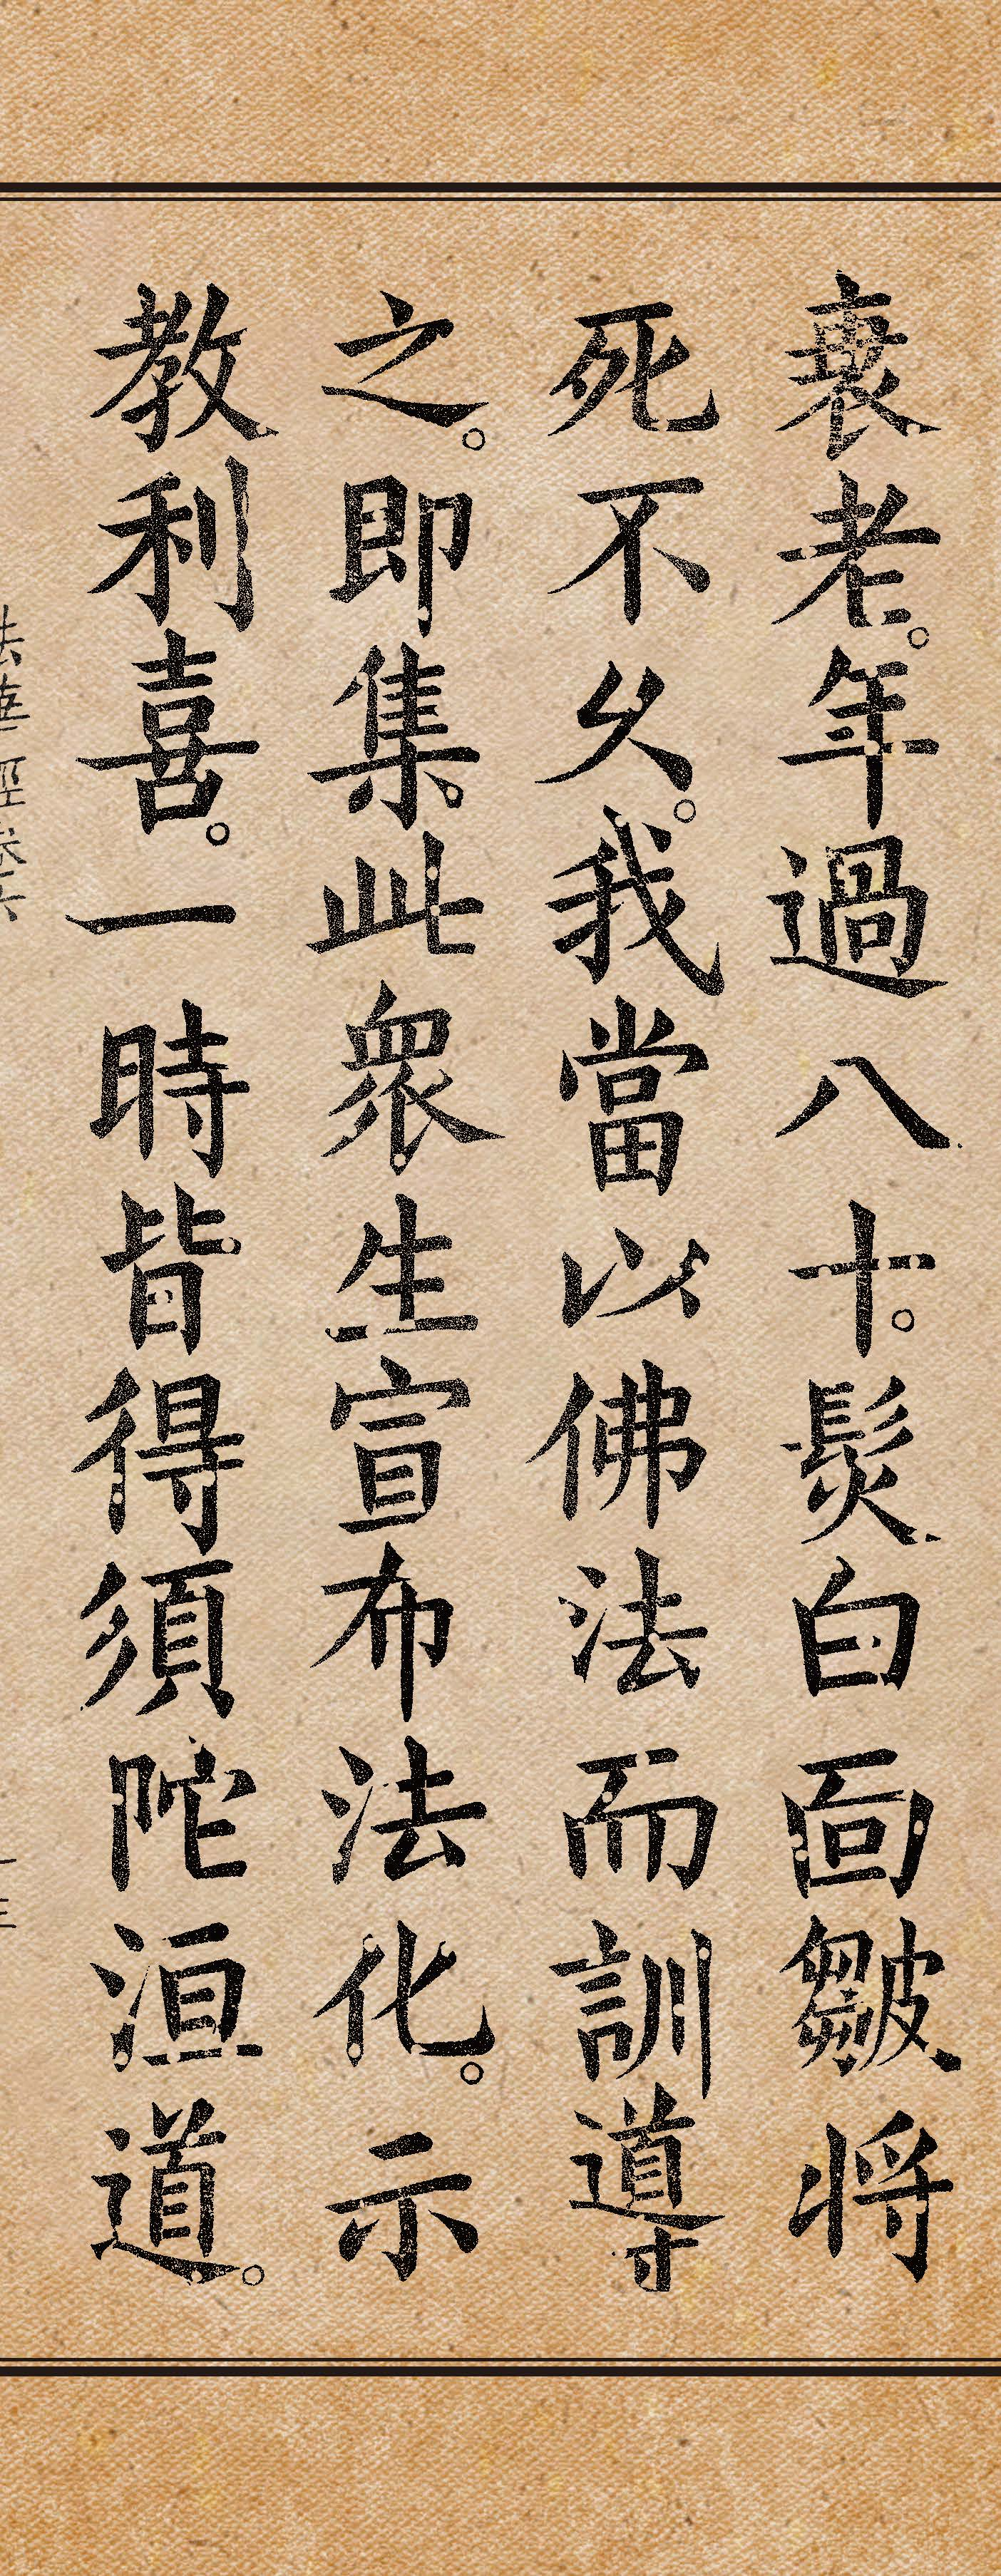 衰老。年過八十。髮白面皺將
死不久。我當以佛法而訓導
之。即集此衆生宣布法化。示
教利喜。一時皆得須陀洹道。
法華經卷六